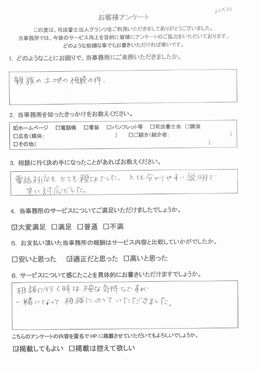 お客様アンケート
この度は、司法書士法人グランツをご利用いただきましてありがとうございました。
当事務所では、今後のサービス向上を目的に皆様にアンケートのご協力をいただいております。
どのような些細な事でもお書きいただければ幸いです。
1. どのようなことにお困りで、当事務所にご来所いただきましたか。
親族の土地の相続の件.
2. 当事務所を知ったきっかけをお教えください。
☑ホームページ □電話帳 □看板 □パンフレット等 □司法書士会 □横浜
□広告(媒体: ) □ご紹介(紹介者: )
□その他( )
3. 相談に行く決め手になったことがあればお教えください。
電話対応もとても親切でした。とても分かりやすい説明で
対応でした。
4. 当事務所のサービスについてご満足いただけましたでしょうか。
☑大変満足 □満足 □普通 □不満
5. お支払い頂いた当事務所の報酬はサービス内容と比較していかがでしたか。
□安いと思った ☑適正だと思った □高いと思った
6. サービスについて感じたことを具体的にお書きいただけますでしょうか。
相談に行く時は不安な気持ちですが
一緒になって相談にのっていただきました。
こちらのアンケートの内容を匿名でHPに掲載させていただいてもよろしいでしょうか。
☑掲載してもよい □掲載は控えて欲しい